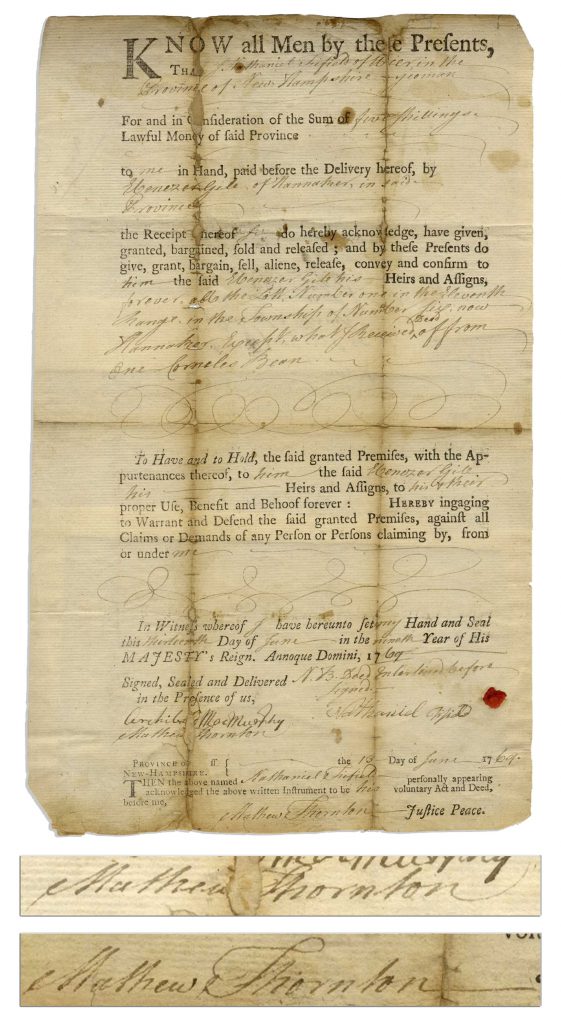 KNOW all Men by these Presents,
THAT I Nathaniel of in the
Province of New Hampshire yeoman
For and in Consideration of the Sum of five shillings
Lawful Money of said Province
to me in Hand, paid before the Delivery hereof, by
Ebenezer Gile of Hannaker in said
Province
the Receipt whereof I do hereby acknowledge, have given,
granted, bargained, sold and released; and by these Presents do
give, grant, bargain, sell, aliene, release, convey and confirm to
him the said Ebenezer Gile his Heirs and Assigns,
forever all the Lott Number one in the Eleventh
Range in the Township of Number six now
Hannaker what I Received Deed off from
one Corneles Bean
To Have and to Hold, the said granted Premises, with the Ap-
purtenances thereof, to him the said Ebenezer Gile
his Heirs and Assigns, to his & their
proper Use, Benefit and Behoof forever: HEREBY ingaging
to Warrant and Defend the said granted Premises, against all
Claims or Demands of any Person or Persons claiming by, from
or under me
In Witness whereof I have hereunto set my Hand and Seal
this thirteenth Day of June in the nineth Year of His
MAJESTY's Reign. Annoque Domini, 1769
Signed, Sealed and Delivered N.B. Deed Interlined before
in the Presence of us, signed
Archibd MacMurphy Nathaniel
Mathew Thornton
PROVINCE OF NEW-HAMPSHIRE. ss { the 13 Day of June 1769.
THEN the above named Nathaniel personally appearing
acknowledged the above written Instrument to be his voluntary Act and Deed,
before me,
Mathew Thornton Justice Peace.
MacMurphy
Mathew Thornton
Mathew Thornton